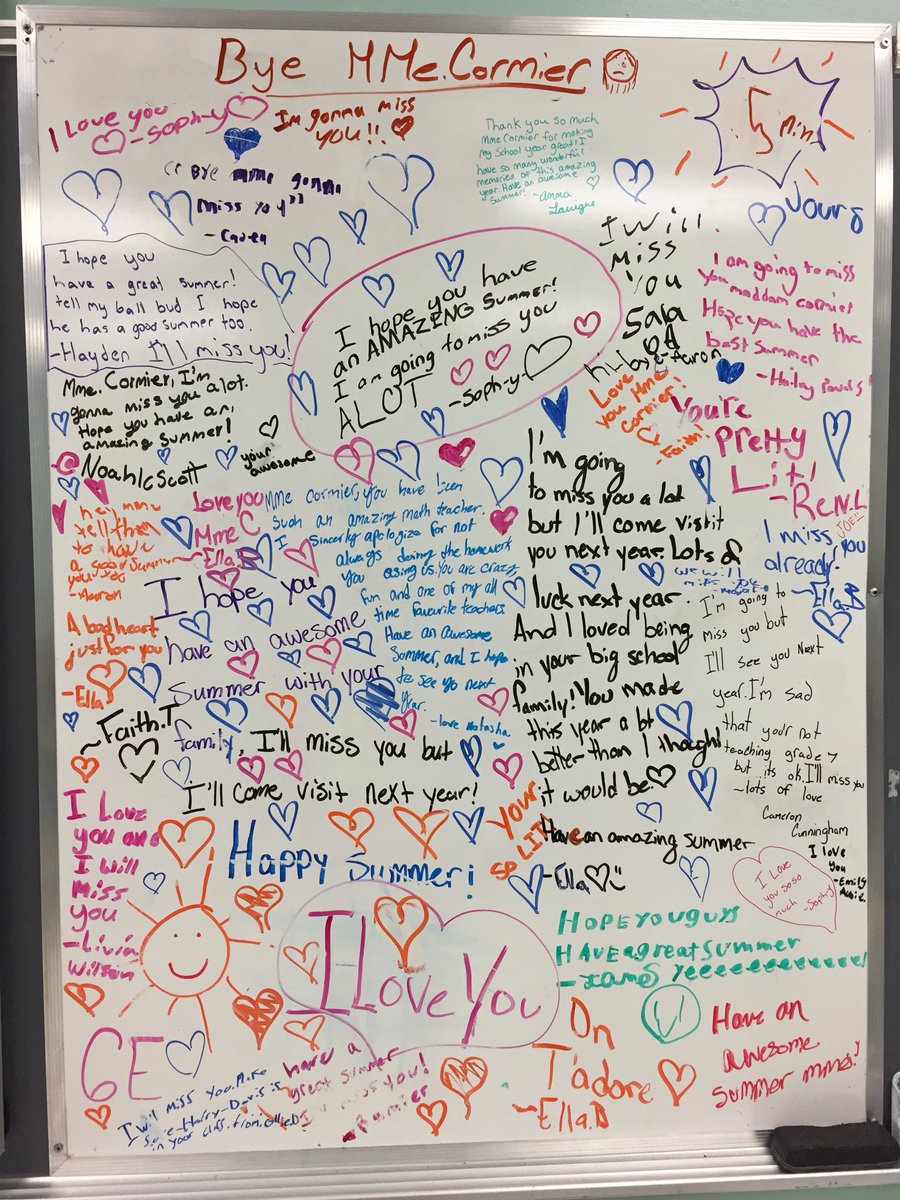 Bye MMe.Cormier
I Love you
-Soph-y
I'm gonna miss
you!!
Thank you so much
Mme Cormier for making
my School year good! I
have so many wonderful
memories of this amazing
year. Have an awesome
Summer!
-Anna
Lavigne
5 Min
"Bye mme gonna
miss you"
-Caden
yours
I hope you
have a great summer!
tell my ball bud I hope
he has a good summer too.
-Hayden I'll miss you!
I hope you have
an AMAZING Summer!
I am going to miss you
ALOT
-Soph-y-
I will
Miss
You
-Aaron
I am going to miss
you maddam cormier
Hope you have the
best Summer
-Hailey
Love
you Mme
Cormier!
-Faith
Mme. Cormier, I'm
gonna miss you alot.
Hope you have an
amazing Summer!
Noah Scott
your
awesome
You're
Pretty
Lit!
-Ren.L
JOEL
Love you
Mme C
~Ella.B
tell them
to have
a good Summer
-Aaron
Mme Cormier, you have been
Such an amazing math teacher.
I Sincerly apologize for not
always doing the homework
you asing us. You are crazy,
fun and one of my all
time favourite teachers
Have an Awesome
Summer, and I hope
to see yo next
year.
-love Natasha
I'm going
to miss you a lot
but I'll come vistit
you next year. Lots of
luck next year.
And I loved being
in your big school
family! You made
this year a lot
better than I thought
it would be.
Have an amazing summer
-Ella
I miss you
already!
~Ella.B
we will
miss you
I'm going to
miss you but
I'll see you Next
year. I'm sad
that your not
teaching grade 7
but its ok. I'll miss you
~lots of love
Cameron
Cunningham
I hope you
have an awesome
Summer with your
family, I'll miss you but
I'll come visit next year!
~Faith.T
A big heart
just for you
-Ella
I Love
you and
I will
miss
you
-Livia
Wilson
Your
so LIT
Happy Summer!
I love
you
-Emily
I Love
you so so
much -Soph-y
I Love You
Hope you guys
Have a great summer
Yeeeeeeeeeeeeee
6E
I will miss you. Make
in your class. from: ellie.D
have a
great summer
I'll miss you!
On
T'adore
~Ella.B
Have an
awesome
summer mme!